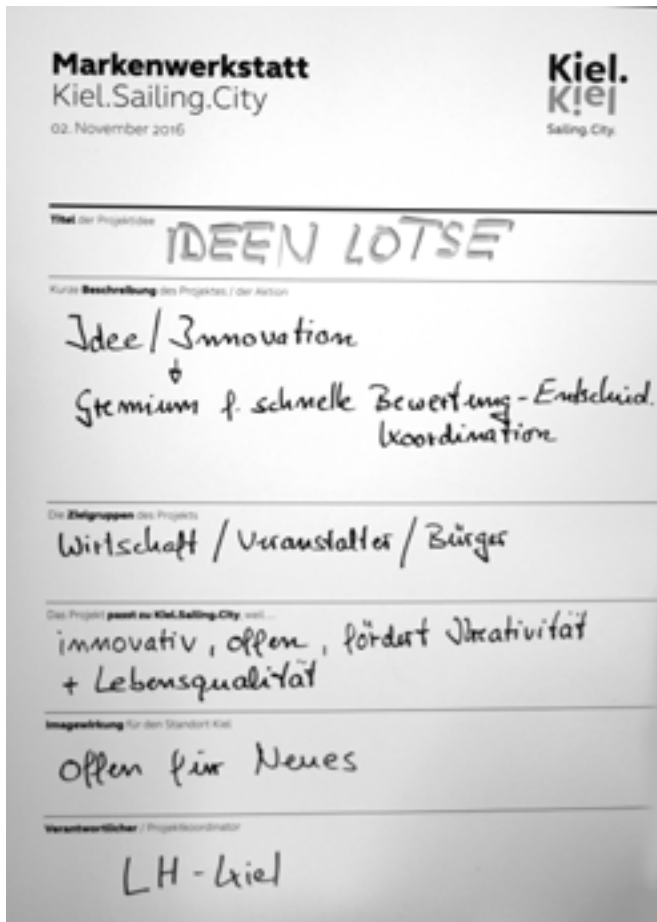 Markenwerkstatt
Kiel.Sailing.City
02. November 2016
Kiel.
Kiel
Sailing.City.
Titel der Projektidee
IDEEN LOTSE
Kurze Beschreibung des Projektes / der Aktion
Idee / Innovation
Gremium f. schnelle Bewertung - Entscheid.
Koordination
Die Zielgruppen des Projekts
Wirtschaft / Veranstalter / Bürger
Das Projekt passt zu Kiel.Sailing.City, weil...
innovativ, offen, fördert Kreativität
+ Lebensqualität
Imagewirkung für den Standort Kiel
Offen für Neues
Verantwortlicher / Projektkoordinator
LH - Kiel